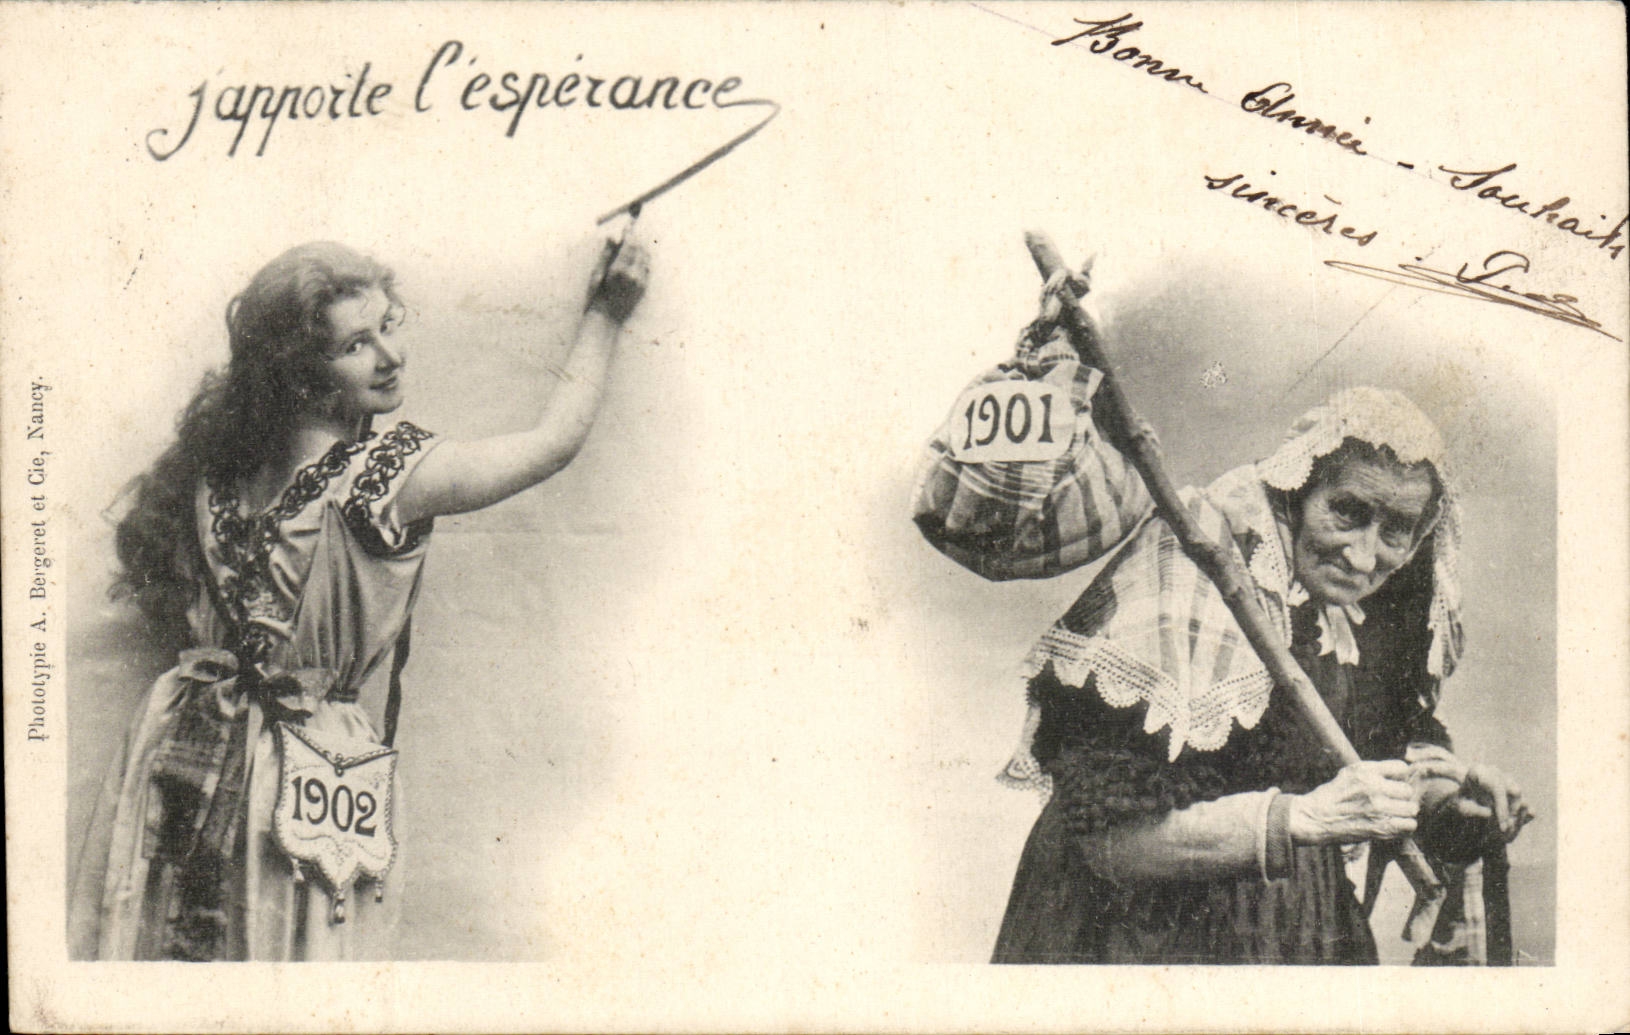 j'apporte l'espérance
Bonne Année - Souhaits
sincères.
1901
1902
Phototypie A. Bergeret et Cie, Nancy.